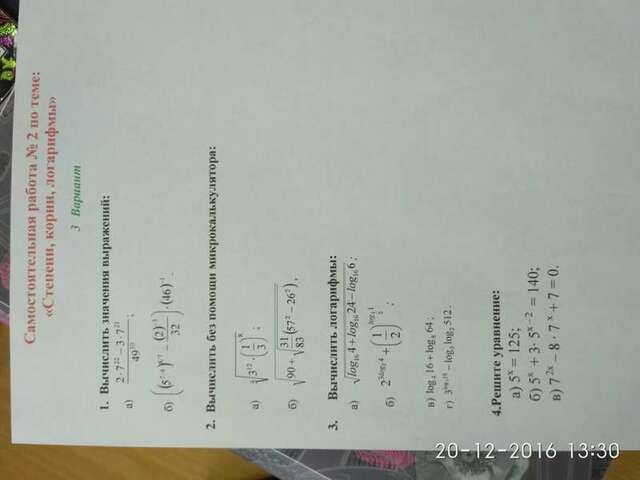 Самостоятельная работа № 2 по теме:
«Степени, корни, логарифмы»
3 Вариант
1. Вычислить значения выражений:
а) (2·7²² − 3·7²¹) / 49¹⁰ ;
б)
2. Вычислить без помощи микрокалькулятора:
а)
б) √(90 + √(31/83 (57² − 26²))).
3. Вычислить логарифмы:
а) √(log₁₆ 4 + log₁₆ 24 − log₁₆ 6) ;
б)
в) log₄ 16 + log₈ 64 ;
г) log 512 .
4.Решите уравнение:
а) 5ˣ = 125;
б) 5ˣ + 3 · 5ˣ⁻² = 140;
в) 7²ˣ − 8 · 7ˣ + 7 = 0.
20-12-2016 13:30